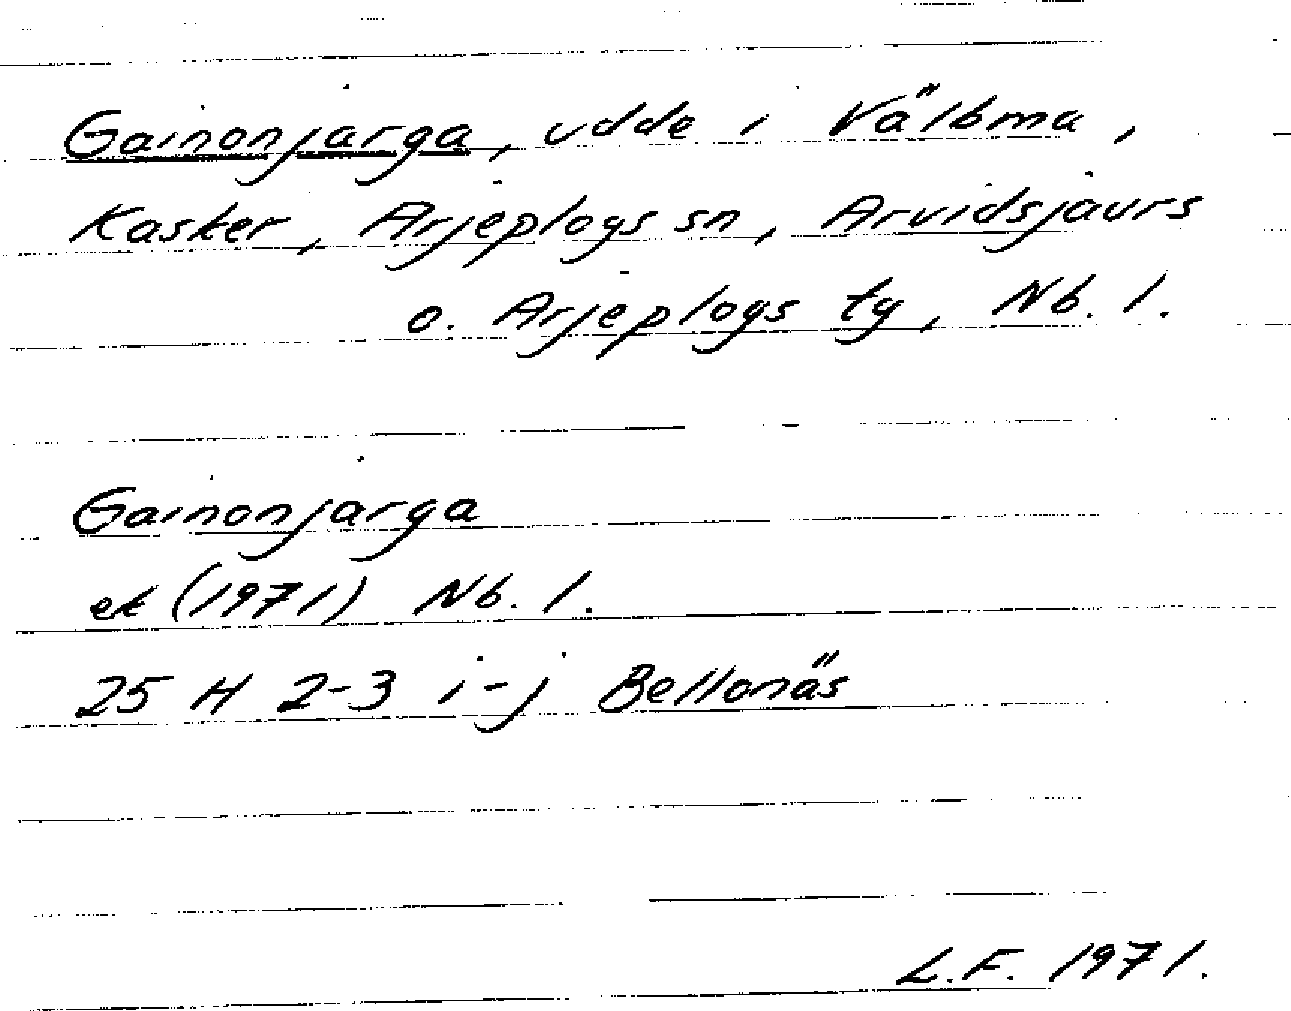 Gainonjarga, udde i Välbma,
Kasker, Arjeplogs sn, Arvidsjaurs
o. Arjeplogs tg, Nb. l.
Gainonjarga
ek (1971) Nb. l.
25 H 2-3 i-j Bellonäs
L.F. 1971.